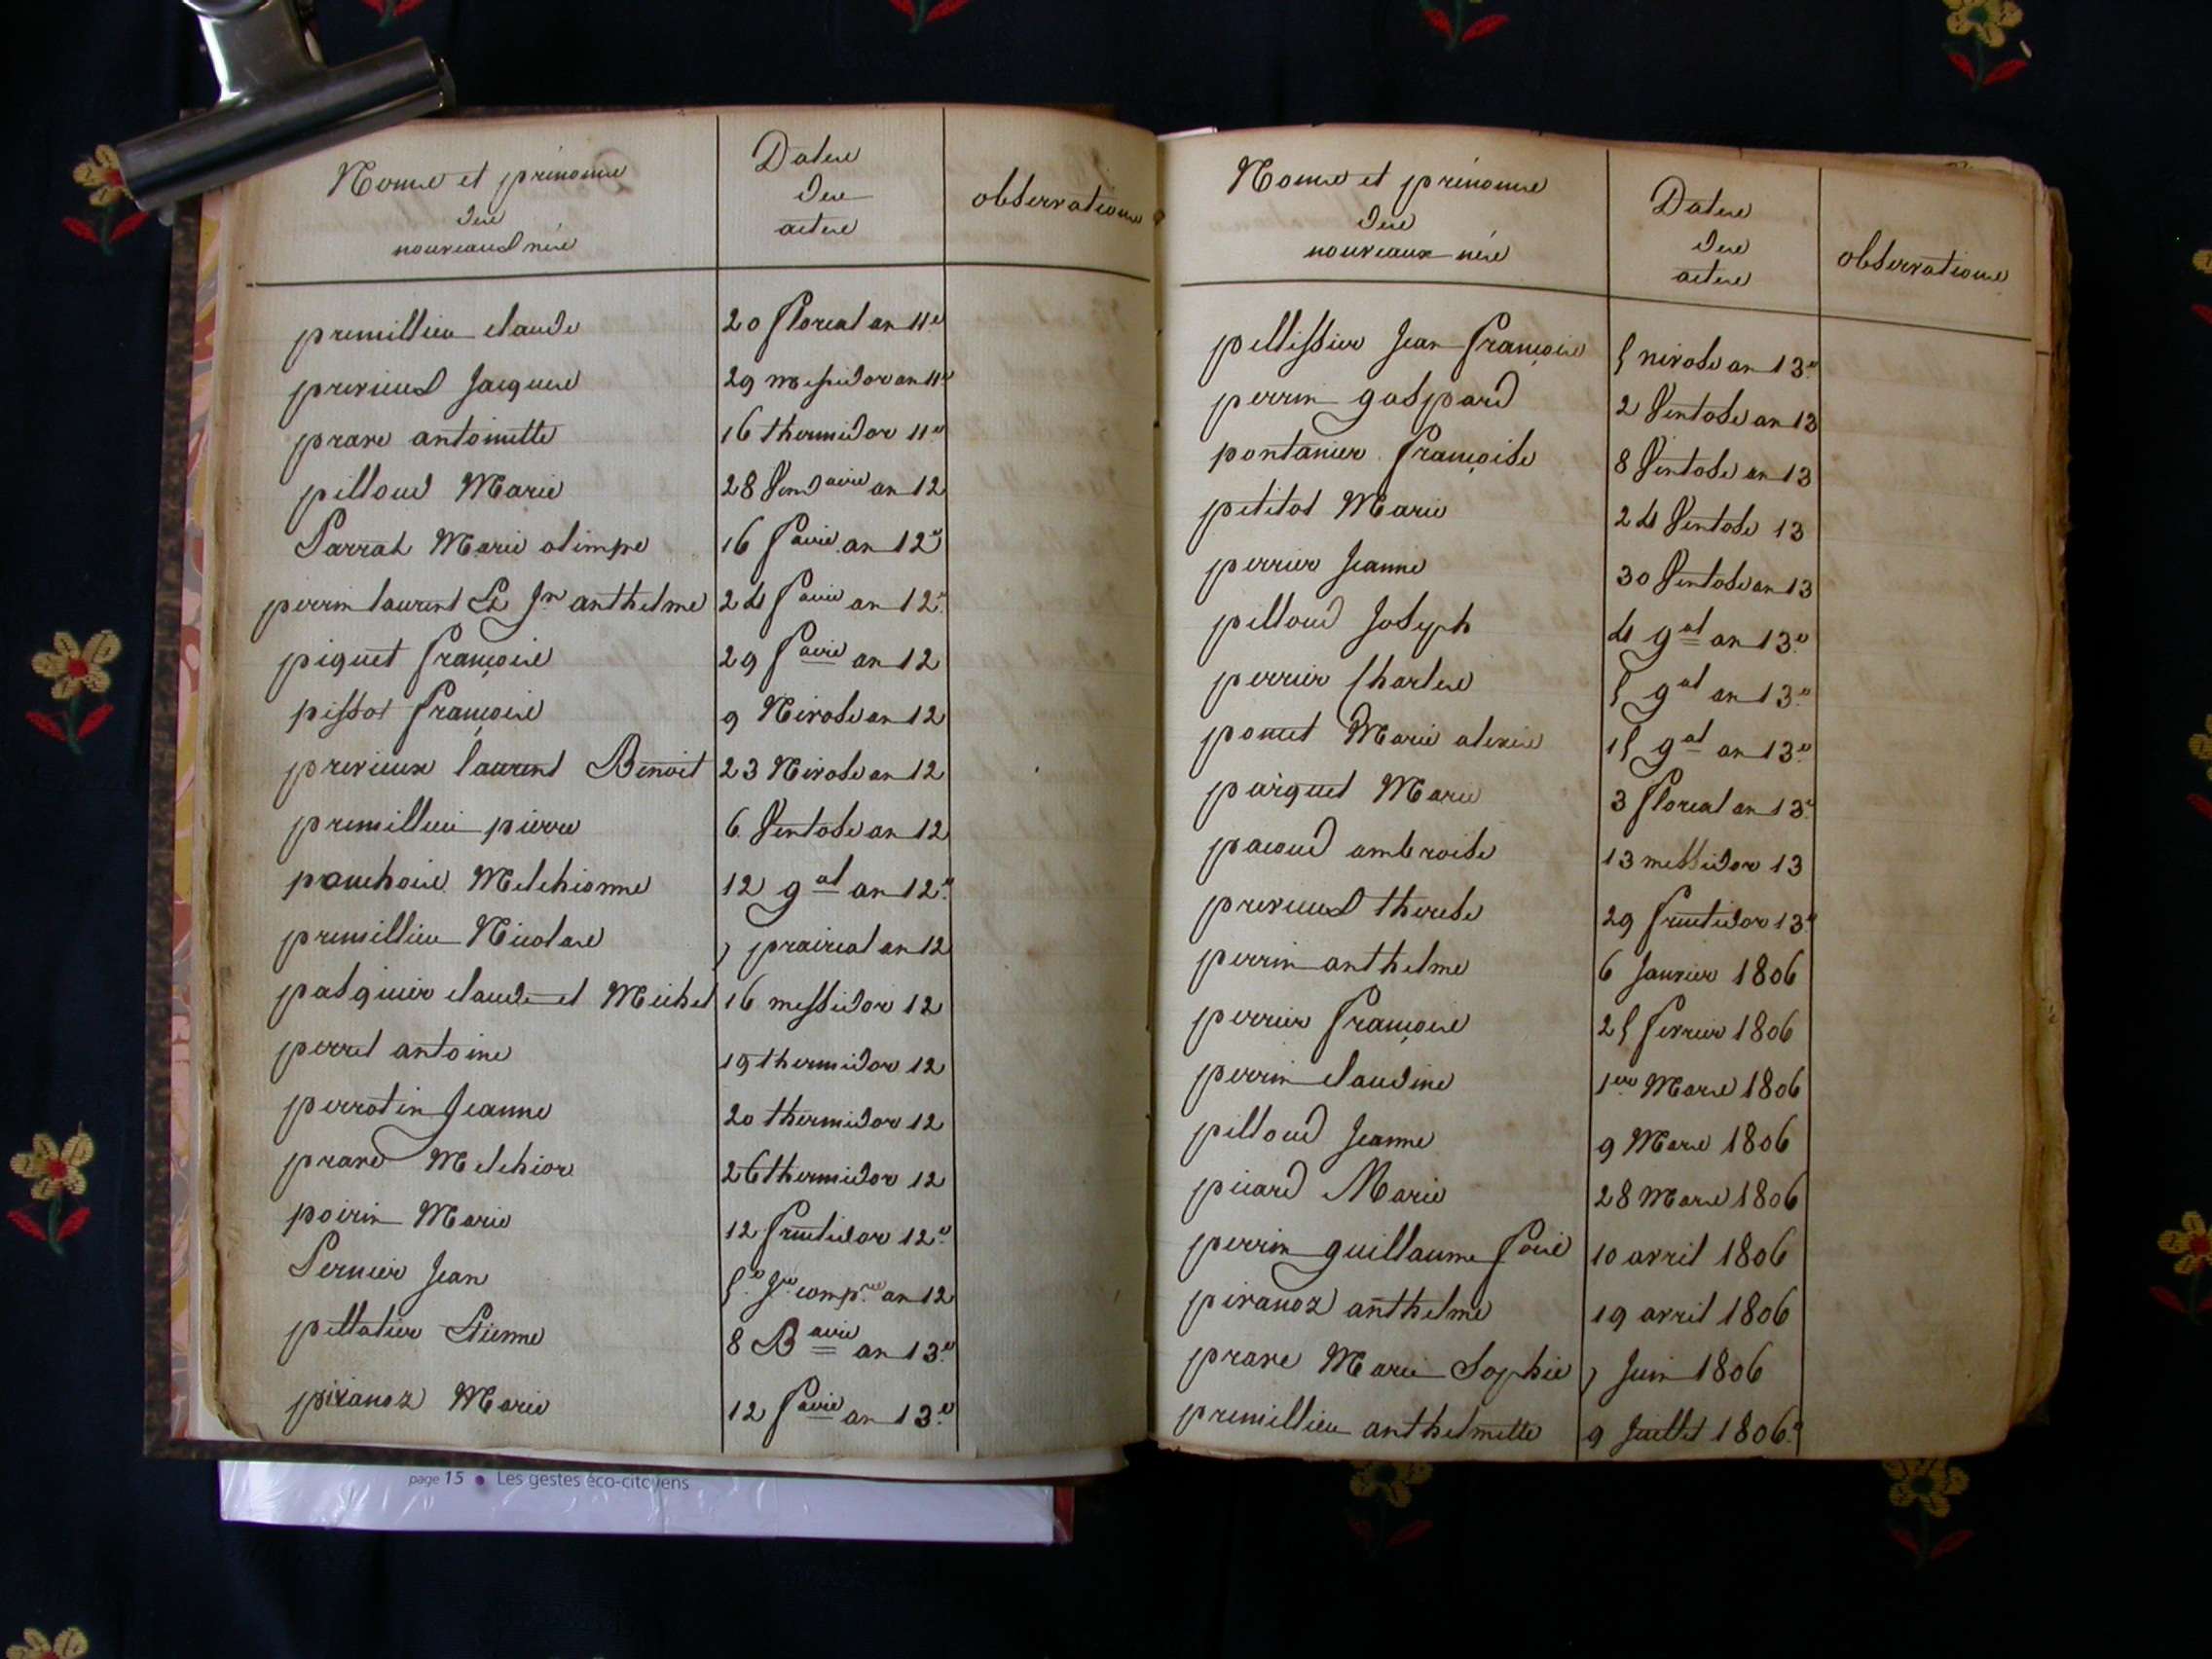 Noms et prénoms
des
nouveaux nés
Dates
des
actes
observations
premillieu claude 20 floreal an 11e
previeux Jacques 29 messidor an 11e
prave antoinette 16 thermidor 11e
pilloud Marie 28 Vend.aire an 12
Parrat Marie olimpe 16 f.aire an 12e
perrin laurent & Jn anthelme 24 f.aire an 12e
piquet françois 29 f.aire an 12
pissot françois 9 Nivose an 12
previeux laurent Benoit 23 Nivose an 12
premillieu pierre 6 Ventose an 12
Melchionne 12 g.al an 12e
premillieu Nicolas 7 prairial an 12
pasquier claude et Michel 16 messidor 12
perret antoine 19 thermidor 12
perrotin Jeanne 20 thermidor 12
prave Melchior 26 thermidor 12
poirin Marie 12 fructidor 12e
Pernier Jean 5e Jr comp.re an 12
pellatier Etienne 8 B.aire an 13e
piranoz Marie 12 f.aire an 13e
Noms et prénoms
des
nouveaux nés
Dates
des
actes
observations
pellissier Jean françois 5 nivose an 13e
perrin gaspard 2 Ventose an 13
pontanier françoise 8 Ventose an 13
petitot Marie 24 Ventose 13
perrier Jeanne 30 Ventose an 13
pilloud Joseph 4 g.al an 13e
perrier Charles 5 g.al an 13e
Marie alexis 15 g.al an 13e
paiquet Marie 3 floreal an 13e
pacoud ambroise 13 messidor 13
previeux therese 29 fructidor 13e
perrin anthelme 6 Janvier 1806
perrier françois 25 fevrier 1806
perrin claudine 1er Mars 1806
pilloud Jeanne 9 Mars 1806
picard Marie 28 Mars 1806
perrin guillaume 10 avril 1806
piranoz anthelme 19 avril 1806
prave Marie Sophie 7 Juin 1806
premillieu anthelmette 9 Juillet 1806
page 15 • Les gestes éco-citoyens